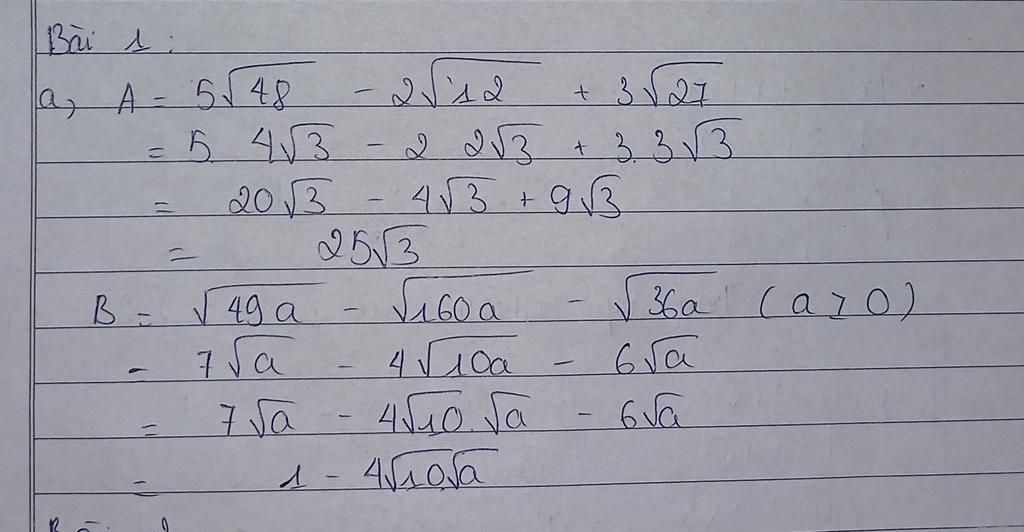 Bài 1:
a, A = 5√48 - 2√12 + 3√27
= 5. 4√3 - 2 2√3 + 3.3√3
= 20√3 - 4√3 + 9√3
= 25√3
B = √49a - √160a - √36a (a ≥ 0)
- 7√a - 4√10a - 6√a
= 7√a - 4√10.√a - 6√a
= 1 - 4√10.√a